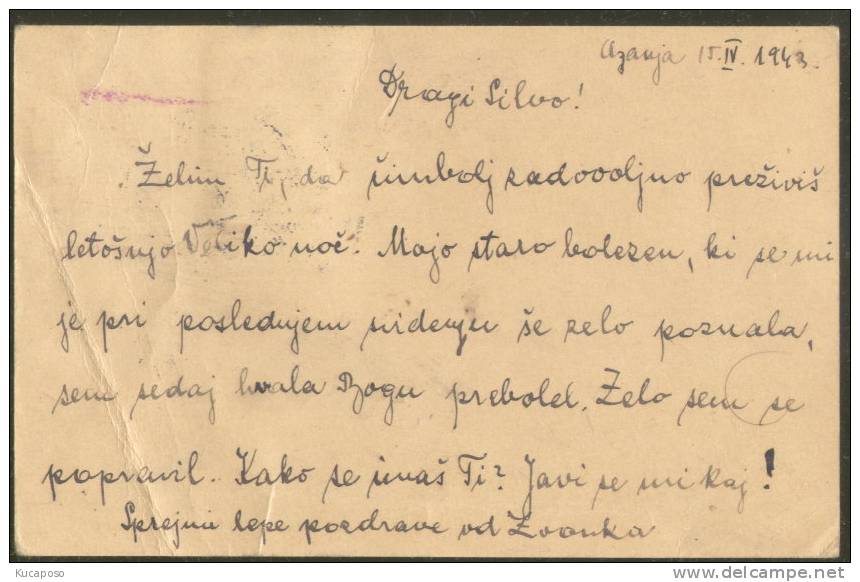 Azanja 15. IV. 1943.
Dragi Silvo!
Želim Ti, da čimbolj zadovoljno preživiš
letošnjo Veliko noč. Mojo staro bolezen, ki se mi
je pri poslednjem videnju še zelo poznala,
sem sedaj hvala Bogu prebolel. Zelo sem se
popravil. Kako se imaš Ti? Javi se mi kaj!
Sprejmi lepe pozdrave od Zvonka
Kucaposo
delcampe.net